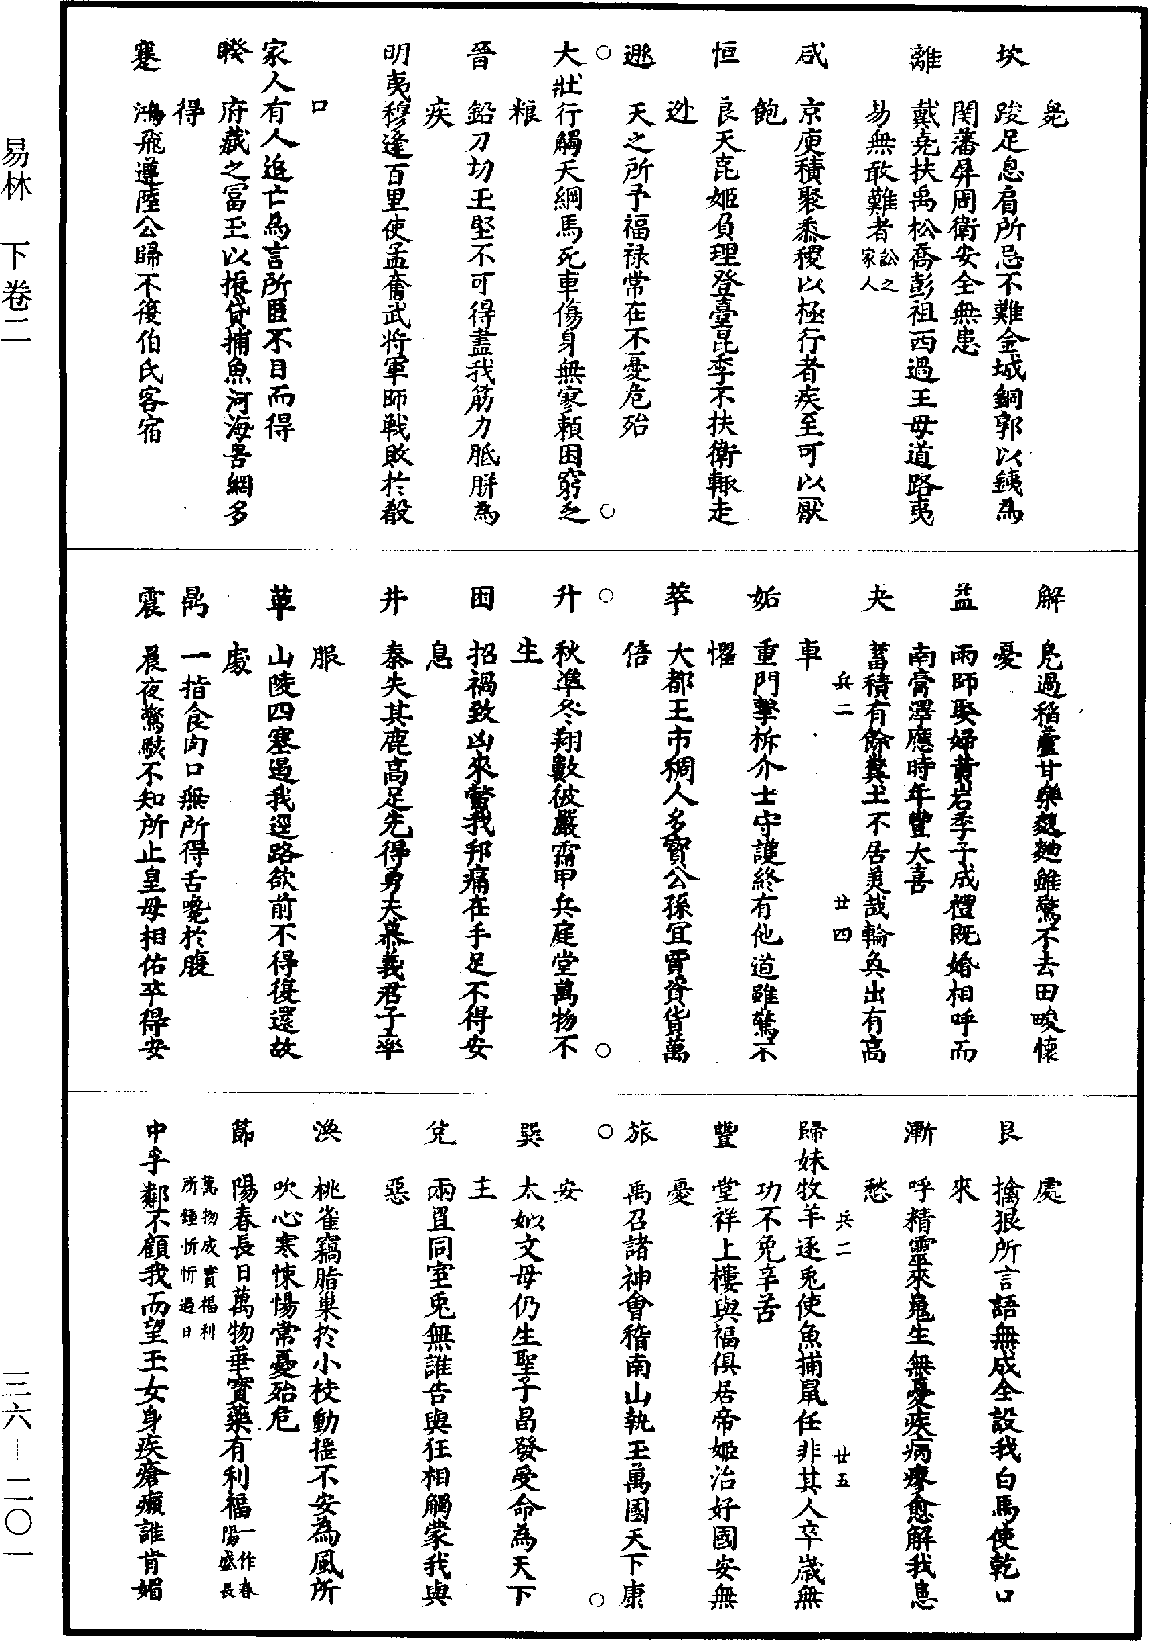 㲋
坎　踆足息肩所忌不難金城銅郭以銕為
閑藩屏周衛安全無患
離　戴堯扶禹松喬彭祖西過王母道路夷
易無敢難者訟之家人
咸　京庾積聚黍稷以極行者疾至可以厭
飽
恒　良夫㫬姬負理登臺㫬季不扶衛輒走
逃
遯　天之所予福祿常在不憂危殆
大壯行觸天綱馬死車傷身無寥賴困窮乏
粮
晉　鉛刀切玉堅不可得盡我筋力胝胼為
疾
明夷穆逢百里使孟奮武將軍師戰敗於殽
口
家人有人追亡鳥言所匿不日而得
睽　府藏之富王以振貸捕魚河海罟網多
得
蹇　鴻飛遵陸公歸不復伯氏客宿
解　鳧過稻廬甘樂䴬䴰雖驚不去田畯懷
憂
益　雨師娶婦黃岩季子成禮既婚相呼而
南膏澤應時年豐大喜
夬　蓄積有餘糞土不居美哉輪奐出有高
兵二　廿四
車
姤　重門擊柝介士守護終有他道雖驚不
懼
萃　大都王市稠人多寶公孫宜賈資貨萬
倍
升　秋隼冬翔數彼嚴霜甲兵庭堂萬物不
生
困　招禍致凶來螫我邦痛在手足不得安
息
井　秦失其鹿高足先得勇夫慕義君子率
服
革　山陵四塞遏我逕路欲前不得復還故
處
鼎　一指食肉口無所得舌嚵於腹
震　晨夜驚駭不知所止皇母相佑卒得安
處
艮　擒狠所言語無成全誤我白馬使乾口
來
漸　呼精靈來魄生無憂疾病瘳愈解我患
愁
歸妹牧羊逐兎使魚捕鼠任非其人卒歲無
兵二　廿五
功不免辛苦
豐　堂祥上樓與福俱居帝姬治好國安無
憂
旅　禹召諸神會稽南山執玉萬國天下康
安
巽　太姒文母仍生聖子昌發受命為天下
主
兌　兩罝同室兎無誰告與狂相觸蒙我與
惡
渙　桃雀竊脂巢於小枝動搖不安為風所
吹心寒悚惕常憂殆危
節　陽春長日萬物華實藥有利福一作春陽盛長
萬物成實福利
所鍾忻忻過日
中孚鄰不顧我而望玉女身疾瘡癩誰肯媚
易林　下卷二
三六—二〇一